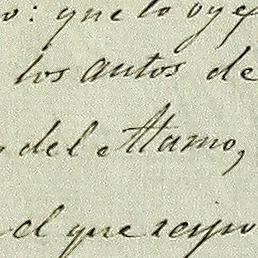 o: que lo oye
los autos de
del Alamo,
el que respo